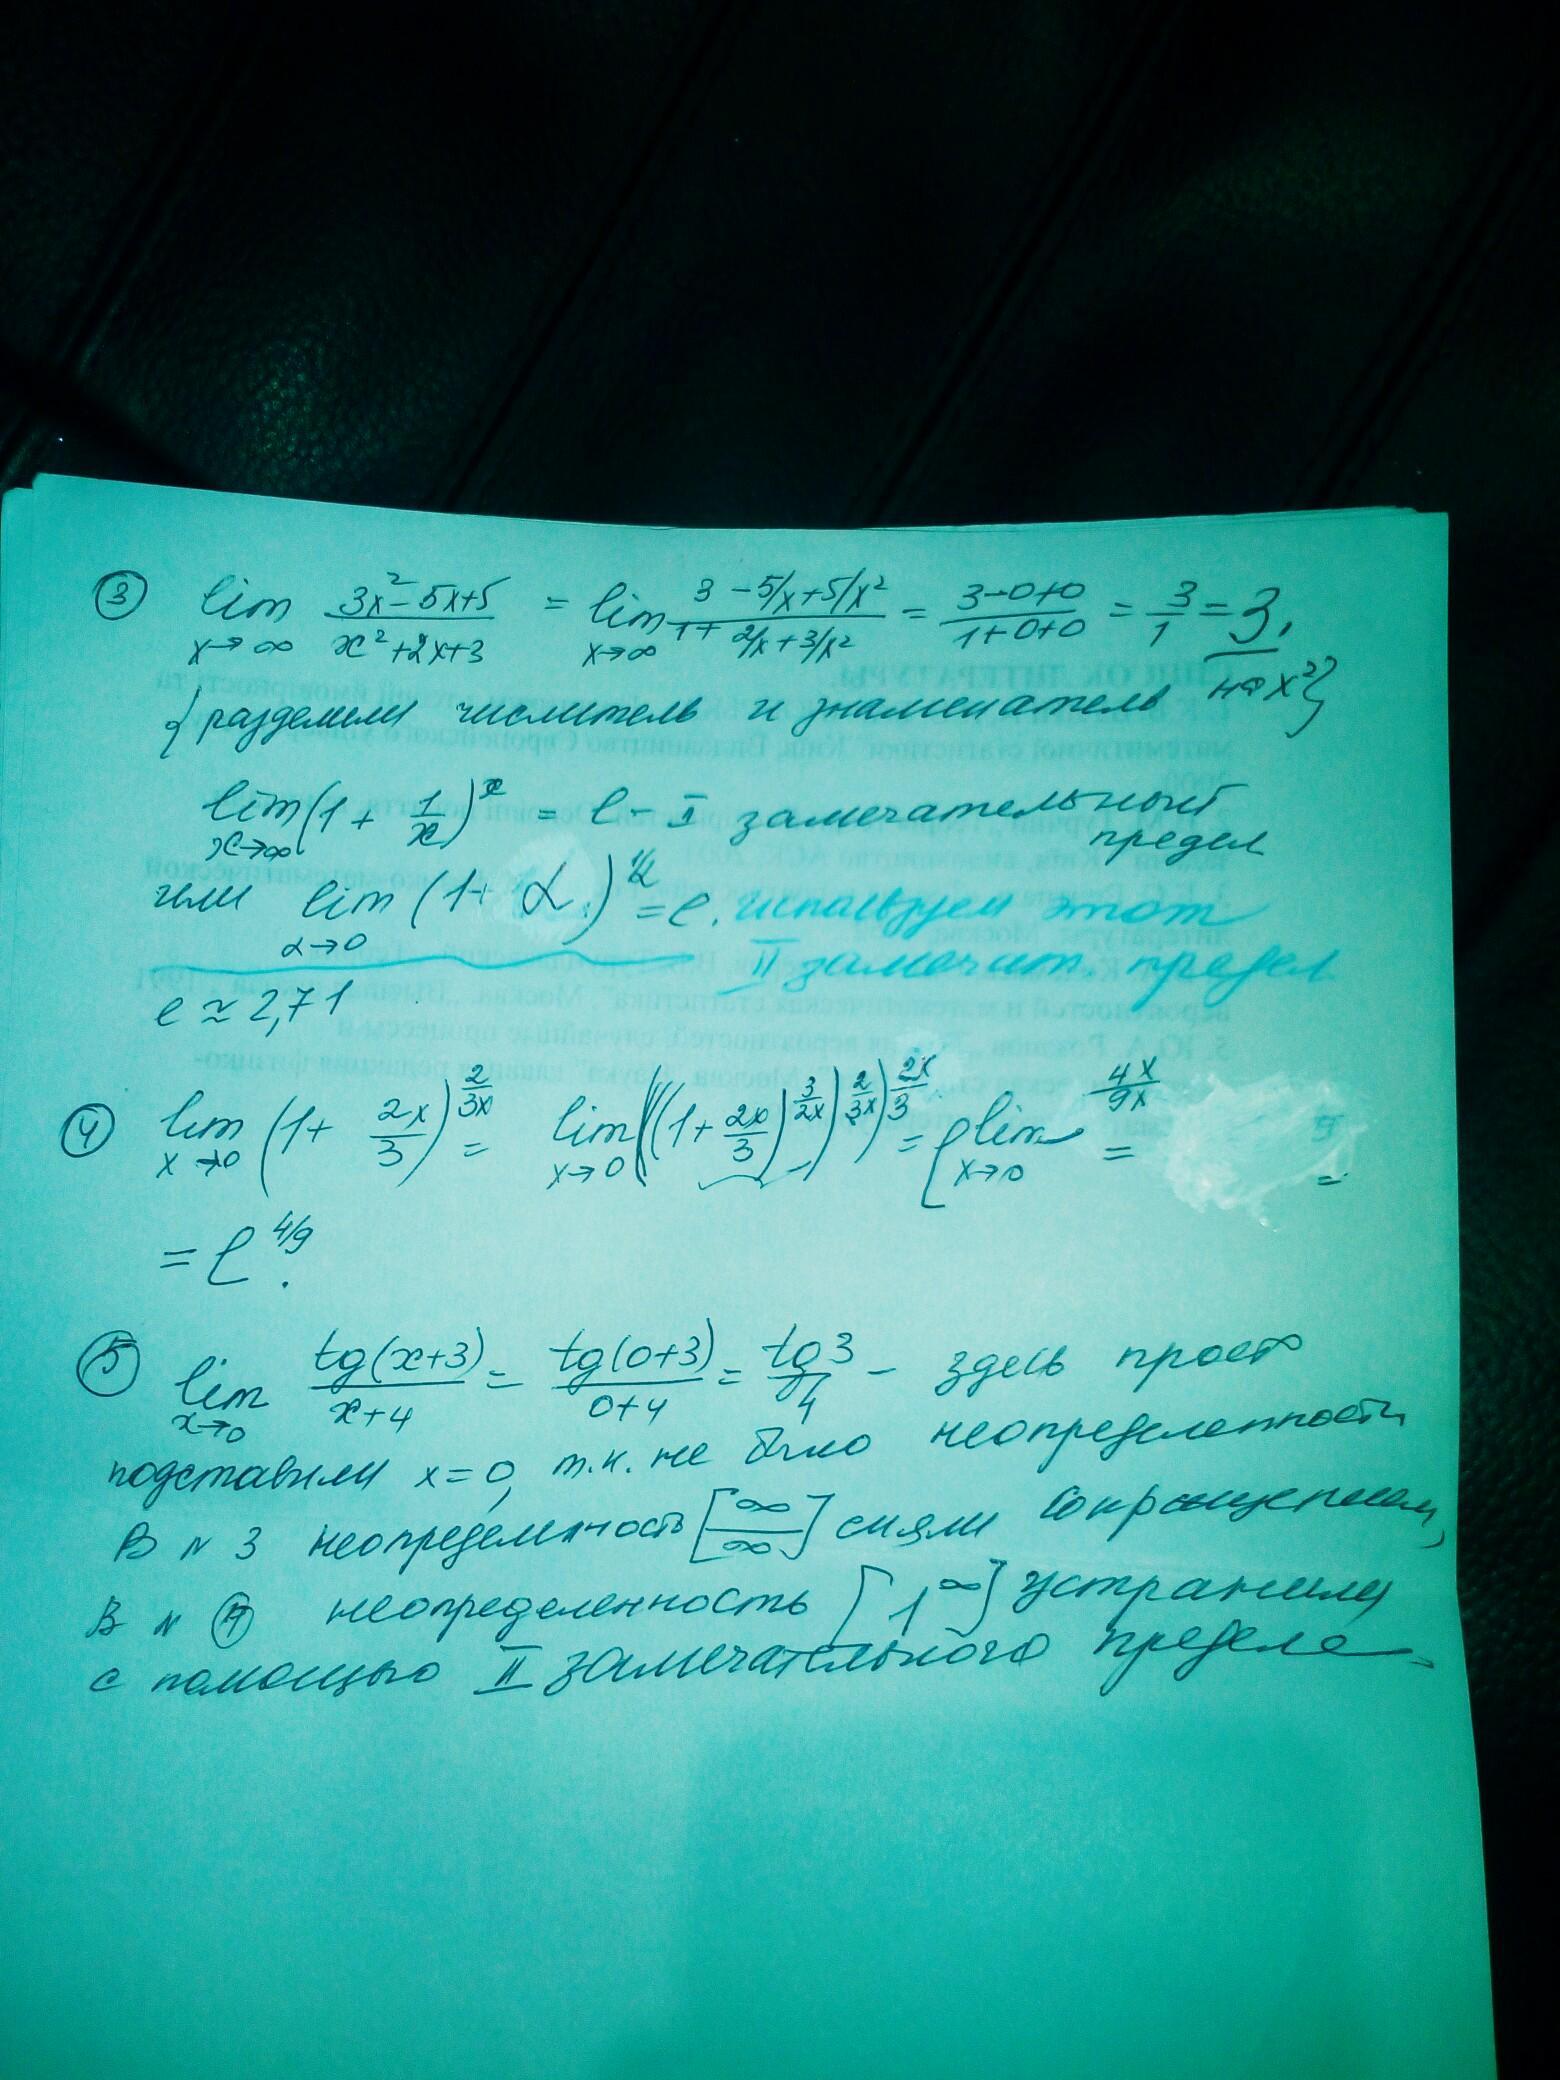 ③ lim x→∞ (3x²-5x+5)/(x²+2x+3) = lim x→∞ (3-5/x+5/x²)/(1+2/x+3/x²) = (3-0+0)/(1+0+0) = 3/1 = 3.
{разделили числитель и знаменатель на x²}
lim x→∞ (1+1/x)^x = e - II замечательный
предел
или lim α→0 (1+α)^(1/α) = e. используем этот
II замечат. предел
e ≈ 2,71
④ lim x→0 (1+2x/3)^(2/3x) = lim x→0 (((1+2x/3)^(3/2x))^(2/3x))^(2x/3) = e^(lim x→0 4x/9x) = =
= e^(4/9).
⑤ lim x→0 tg(x+3)/(x+4) = tg(0+3)/(0+4) = tg3/4 - здесь просто
подставили x=0, т.к. не было неопределенности
В N 3 неопределенность [∞/∞] сняли сокращением,
В N ④ неопределенность [1^∞] устранили
с помощью II замечательного предела.